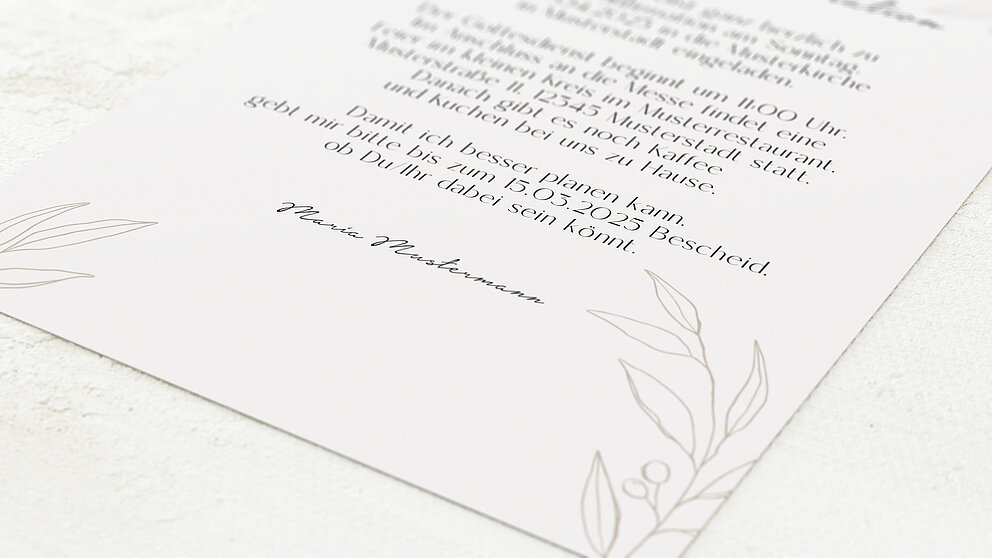 ganz herzlich zu
am Sonntag,
2025 in die Musterkirche
in Musterstadt eingeladen.
Der Gottesdienst beginnt um 11:00 Uhr.
Im Anschluss an die Messe findet eine
Feier im kleinen Kreis im Musterrestaurant.
Musterstraße 11, 12345 Musterstadt statt.
Danach gibt es noch Kaffee
und Kuchen bei uns zu Hause.
Damit ich besser planen kann.
gebt mir bitte bis zum 15.03.2025 Bescheid.
ob Du/Ihr dabei sein könnt.
Maria Mustermann